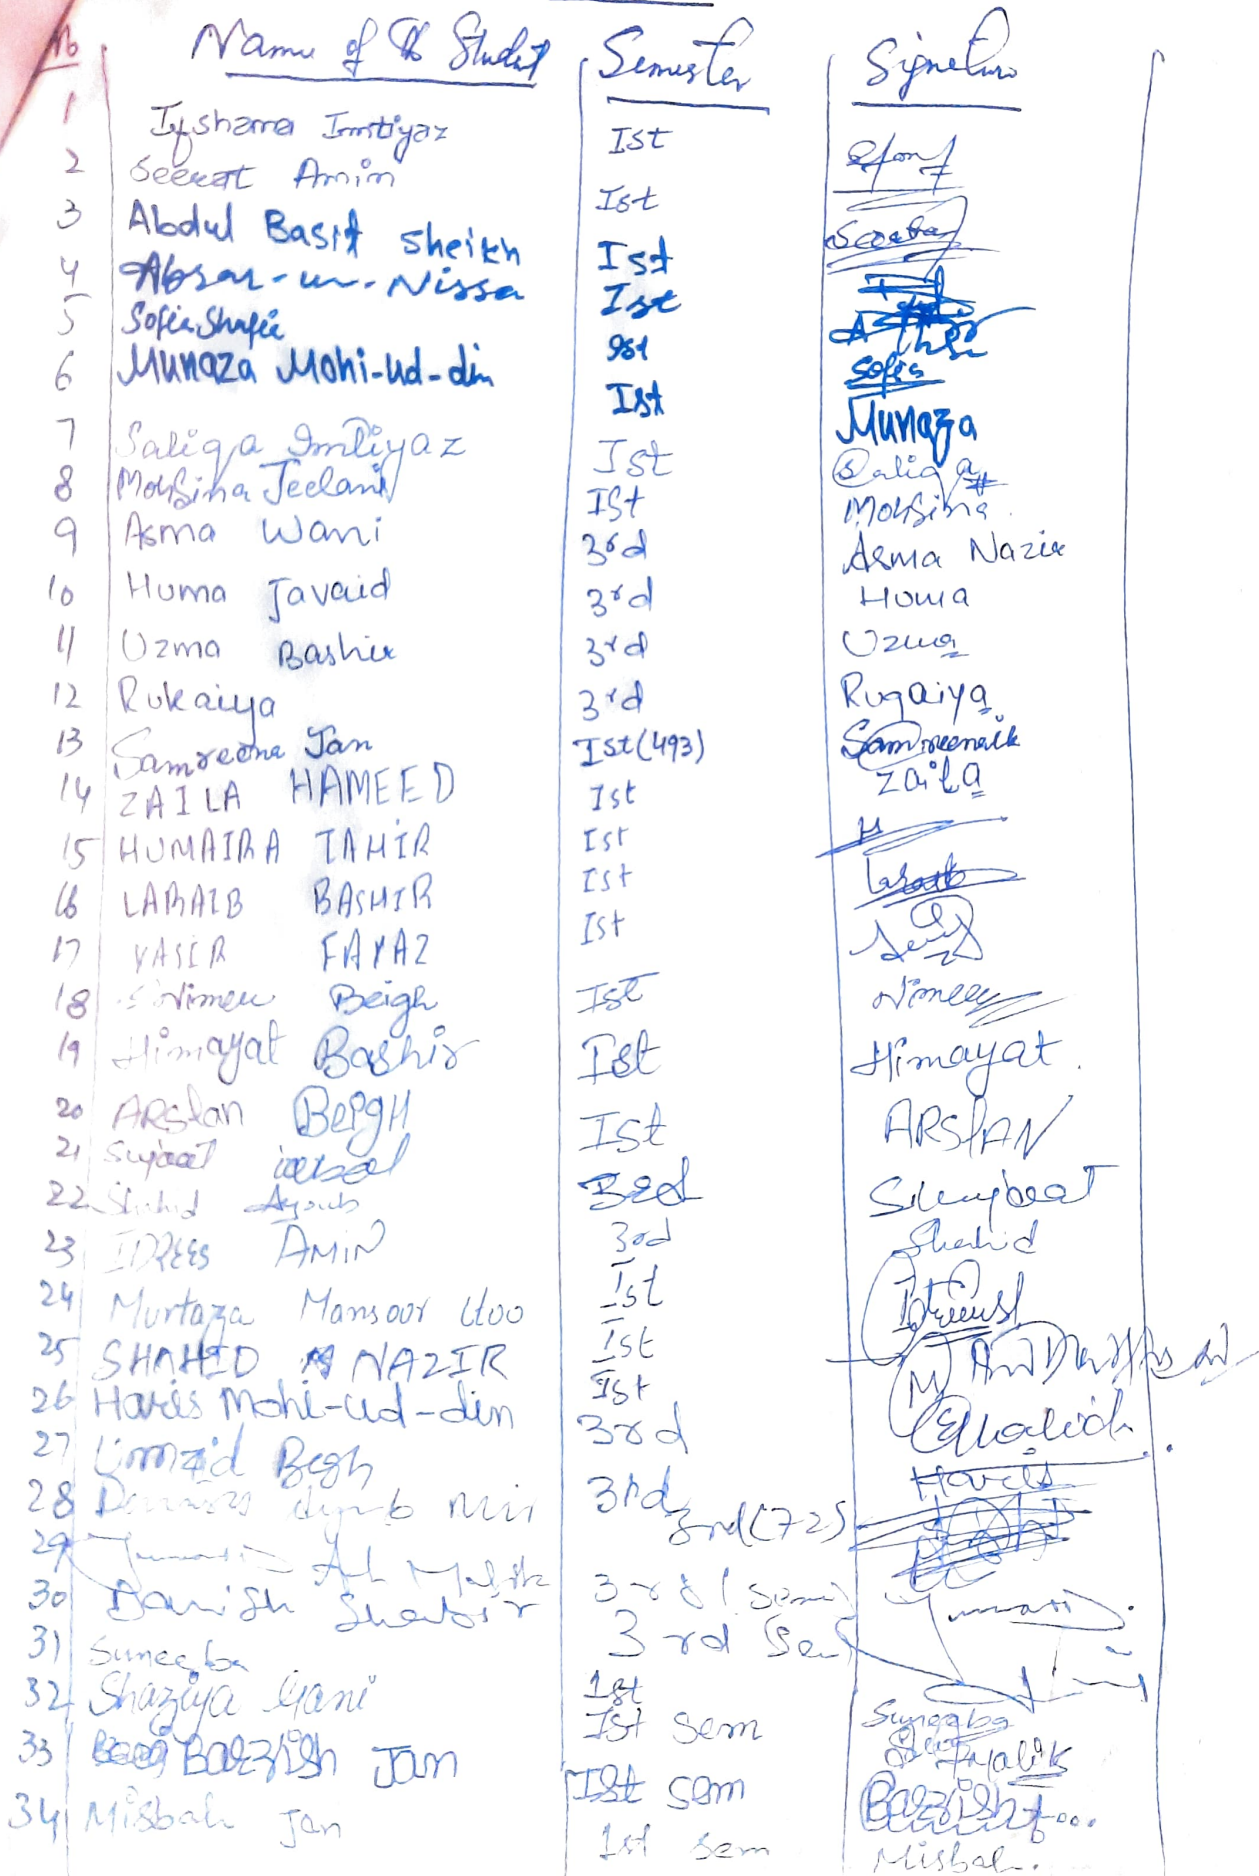 No Name of the Student Semester Signature
1 Ifshana Imtiyaz Ist
2 Seerat Amin Ist
3 Abdul Basit Sheikh Ist
4 Absar-un-Nissa Ist
5 Sofia Shafia Ist Sofia
6 Munaza Mohi-ud-din Ist Munaza
7 Saliqa Imtiyaz Ist Saliqa
8 Mohsina Jeelani Ist Mohsina
9 Asma Wani 3rd Asma Nazir
10 Huma Javaid 3rd Huma
11 Uzma Bashir 3rd Uzma
12 Rukaiya 3rd Ruqaiya
13 Samreena Jan Ist (493)
14 ZAILA HAMEED Ist Zaila
15 HUMAIRA TAHIR Ist H
16 LARAIB BASHIR Ist Laraib
17 YASIR FAYAZ Ist
18 Nimer Beigh Ist
19 Himayat Bashir Ist Himayat.
20 ARSlan BeigH Ist ARSlAN
21 Sujaat 3rd
22 Shahid Ayoub 3rd Shahid
23 IDREES AMIN Ist
24 Murtaza Mansoor Ist
25 SHAHID NAZIR Ist
26 Haris Mohi-ud-din 3rd Haris
27 Umaid Begh 3rd
28 Mir 3rd (72)
29 3rd (sem)
30 Danish Shabir 3rd Sem
31 Suneeba 1st Suneeba
32 Shaziya Gani Ist Sem
33 Barzish Jan Ist Sem Barzish
34 Misbah Jan 1st Sem Misbah.